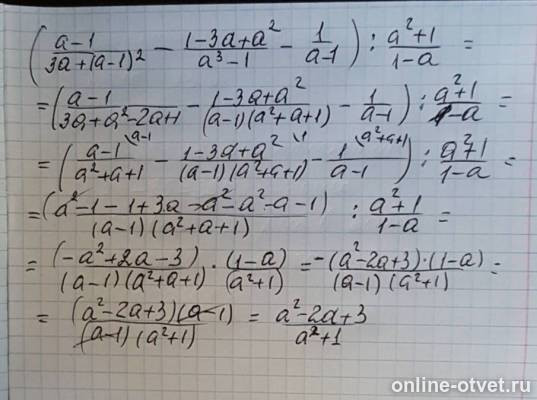 ((a-1)/(3a+(a-1)²) - (1-3a+a²)/(a³-1) - 1/(a-1)) : (a²+1)/(1-a) =
= ((a-1)/(3a+a²-2a+1) - (1-3a+a²)/((a-1)(a²+a+1)) - 1/(a-1)) : (a²+1)/(1-a) =
= ((a-1)\a-1/(a²+a+1) - (1-3a+a²)\1/((a-1)(a²+a+1)) - 1\a²+a+1/(a-1)) : (a²+1)/(1-a) =
= (a²-1-1+3a-a²-a²-a-1)/((a-1)(a²+a+1)) : (a²+1)/(1-a) =
= (-a²+2a-3)/((a-1)(a²+a+1)) · (1-a)/(a²+1) = -(a²-2a+3)·(1-a)/((a-1)(a²+1)) =
= (a²-2a+3)(a-1)/((a-1)(a²+1)) = (a²-2a+3)/(a²+1)
online-otvet.ru